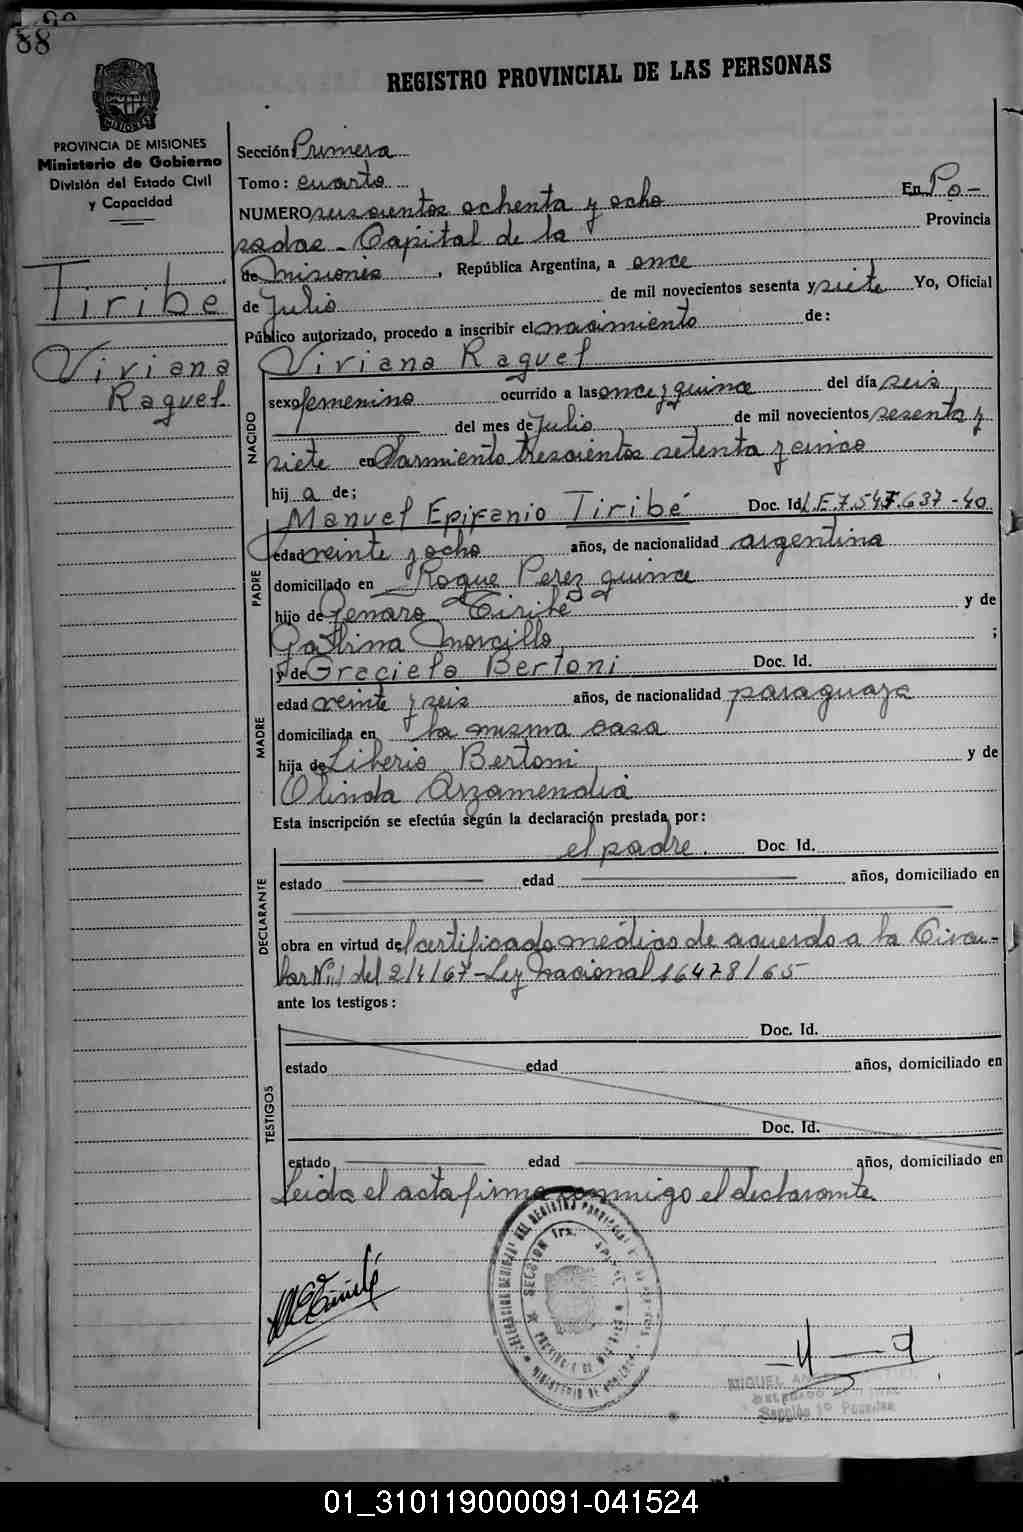 88
REGISTRO PROVINCIAL DE LAS PERSONAS
PROVINCIA DE MISIONES
Ministerio de Gobierno
División del Estado Civil
y Capacidad
Tiribé
Viriana
Raquel
Sección Primera
Tomo: cuarto
NUMERO seiscientos ochenta y ocho En Po-
sadas - Capital de la Provincia
de Misiones, República Argentina, a once
de Julio de mil novecientos sesenta y siete Yo, Oficial
Público autorizado, procedo a inscribir el nacimiento de:
NACIDO
Viriana Raquel
sexo femenino ocurrido a las once y quince del día seis
del mes de Julio de mil novecientos sesenta y
siete en Sarmiento trescientos setenta y cinco
hij a de;
PADRE
Manuel Epifanio Tiribé Doc. Id. L.E.7.547.637-40
edad veinte y ocho años, de nacionalidad argentina
domiciliado en Roque Perez quince
hijo de Genaro Tiribé y de
Morcillo ;
MADRE
y de Graciela Bertoni Doc. Id.
edad veinte y seis años, de nacionalidad paraguaya
domiciliada en la misma casa
hija de Liberio Bertoni y de
Olinda Arzamendia
Esta inscripción se efectúa según la declaración prestada por:
DECLARANTE
el padre. Doc. Id.
estado edad años, domiciliado en
obra en virtud del certificado médico de acuerdo a la Circu-
lar Nº1 del 2/1/67-Ley Nacional 16478/65
ante los testigos:
TESTIGOS
Doc. Id.
estado edad años, domiciliado en
Doc. Id.
estado edad años, domiciliado en
Leida el acta firma conmigo el declarante
SECCION 1ra.
MINISTERIO DE GOBIERNO
MIGUEL
Sección 1º Posadas
01_310119000091-041524